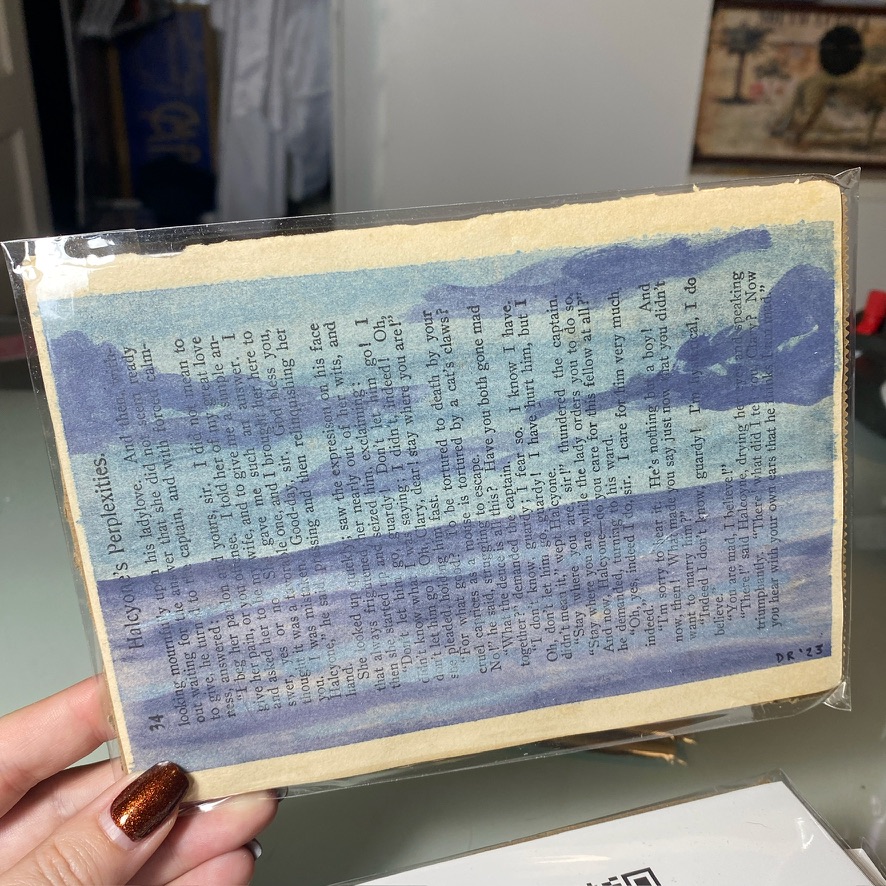 34 Halcyone's Perplexities.
looking mournfully upon his ladylove. And then, with-
out waiting for the answer that she did not seem ready
to give, he turned to the captain, and with forced calm-
ness, answered:
"I beg her pardon and yours, sir. I did not mean to
give her pain, or you offense. I told her of my great love
and asked her to be my wife, and to give me a simple an-
swer, yes or no. She gave me such an answer. I
thought it was a favorable one, and I brought her here to
you. I was mistaken. Good-day, sir. God bless you,
Halcyone," he said, pressing and then relinquishing her
hand.
She looked up quickly; saw the expresison on his face
that always frightened her nearly out of her wits, and
then she started up and seized him, exclaiming:
"Don't let him go, guardy! Don't let him go! I
didn't know what I was saying; I didn't, indeed! Oh,
don't let him go! Oh, Hilary, dear! stay where you are!"
she pleaded holding him fast.
"For what good? To be tortured to death by your
cruel caprices as a mouse is tortured by a cat's claws?
No!" he said, struggling to escape.
"What the deuce is all this? Have you both gone mad
together?" demanded the captain.
"I don't know, guardy, I fear so. I know I have.
Oh, don't let him go, guardy! I have hurt him, but I
didn't mean it," wept Halcyone.
"Stay where you are, sir!" thundered the captain.
"Stay where you are while the lady orders you to do so.
And now, Halcyone—do you care for this fellow at all?"
he demanded, turning to his ward.
"Oh, yes, indeed I do, sir. I care for him very much,
indeed."
"I'm sorry to hear it. He's nothing but a boy! And
now, then! What did you say just now that you didn't
want to marry him?"
"Indeed I don't know, guardy! I'm hysterical, I do
believe."
"You are mad, I believe!"
"There!" said Halcyone, drying her eyes and speaking
triumphantly. "There, what did I tell you, Hilary? Now
you hear with your own ears that he
DR '23